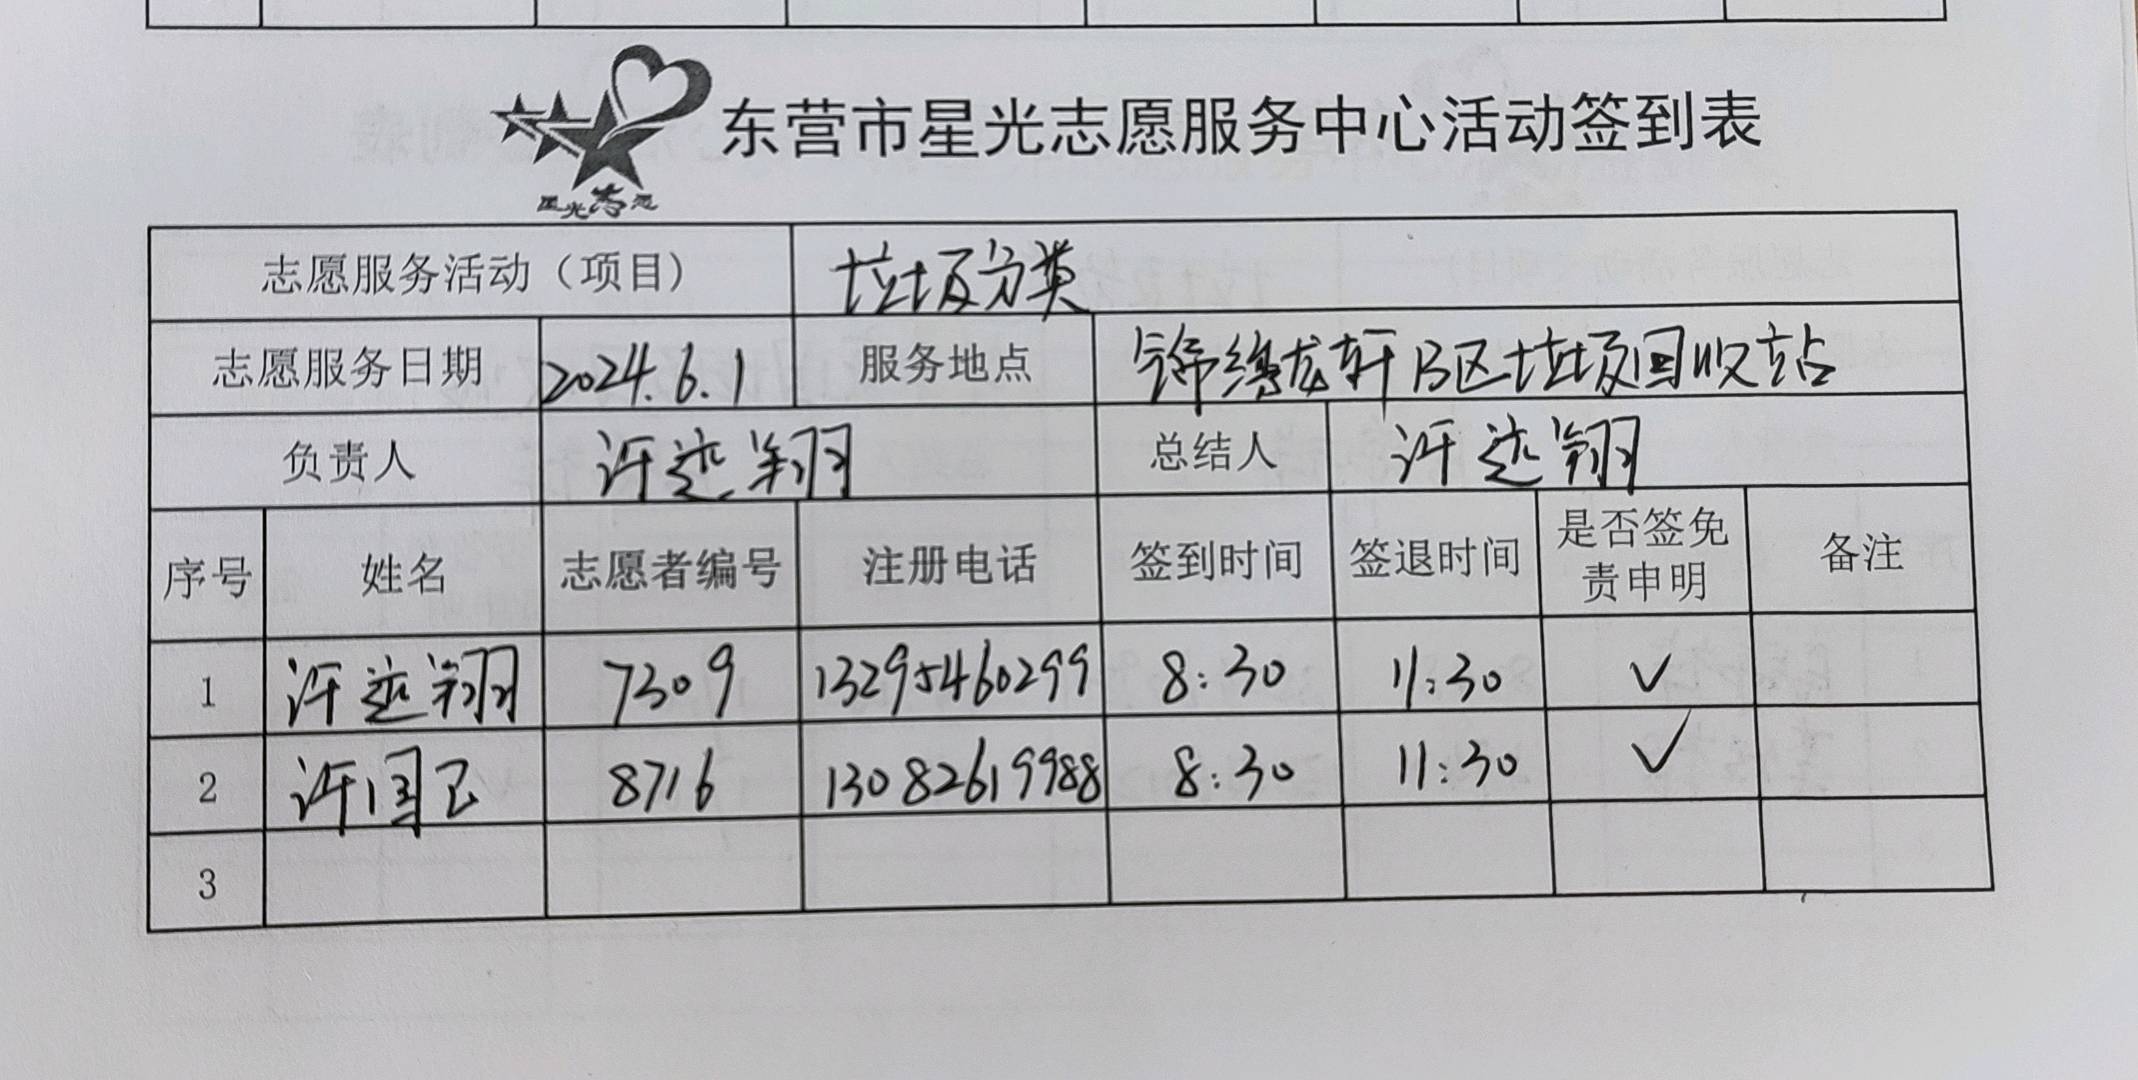 东营市星光志愿服务中心活动签到表
星光志愿
志愿服务活动（项目） 垃圾分类
志愿服务日期 2024.6.1 服务地点 锦绣龙轩B区垃圾回收站
负责人 许迎翔 总结人 许迎翔
序号 姓名 志愿者编号 注册电话 签到时间 签退时间 是否签免责申明 备注
1 许迎翔 7309 13295460299 8:30 11:30 ✓
2 许国卫 8716 13082619988 8:30 11:30 ✓
3